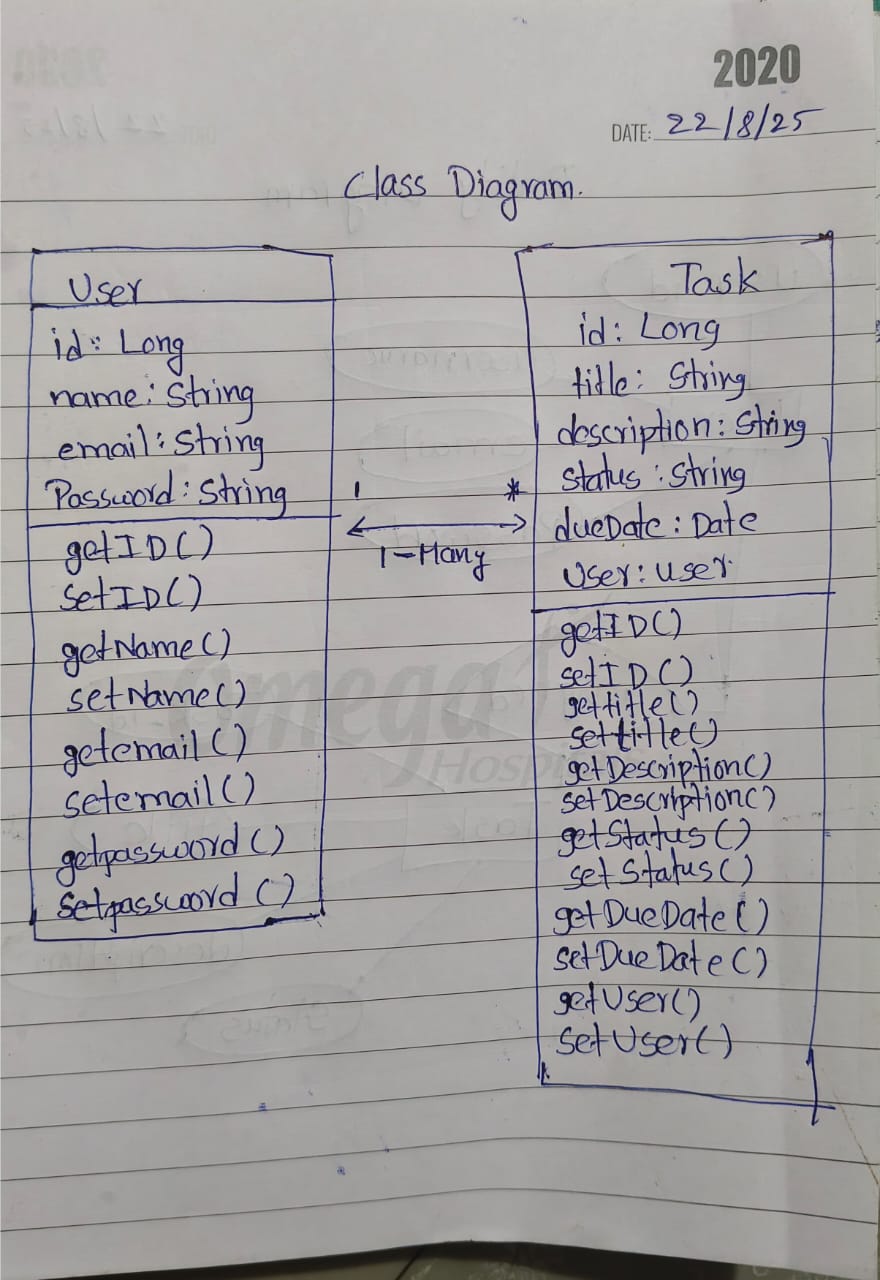 2020
DATE: 22/8/25
Class Diagram.
User
id: Long
name: String
email: String
Password: String
getID()
SetID()
getName()
setName()
getemail()
setemail()
getpassword()
Setpassword()
1 *
1-Many
Task
id: Long
title: String
description: String
Status: String
dueDate: Date
User: user
getID()
setID()
gettitle()
settitle()
getDescription()
setDescription()
getStatus()
setStatus()
getDueDate()
setDueDate()
getUser()
SetUser()
Omega
Hospi